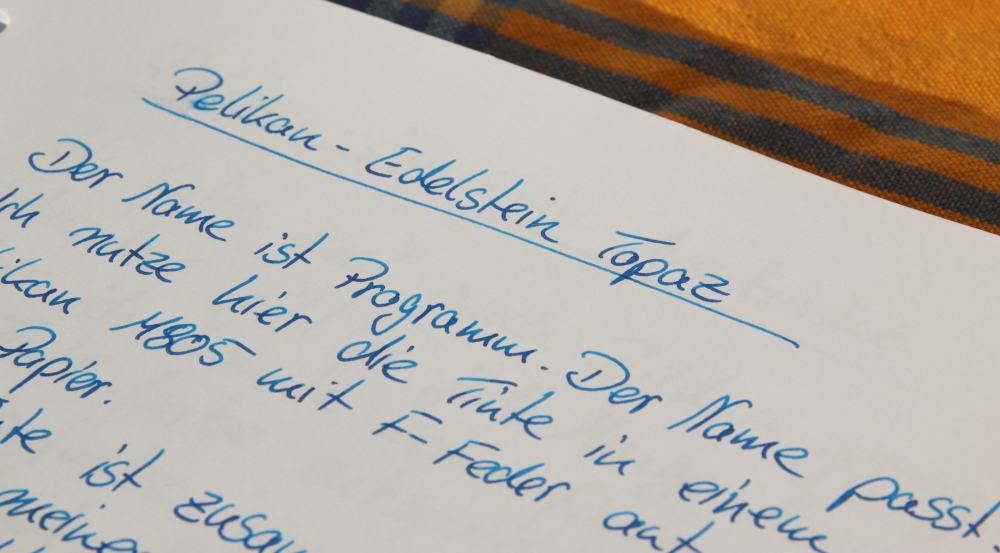 Pelikan - Edelstein Topaz
Der Name ist Programm. Der Name passt.
Ich nutze hier die Tinte in einem
ikan M805 mit F-Feder auf
Papier.
te ist zusa
meine